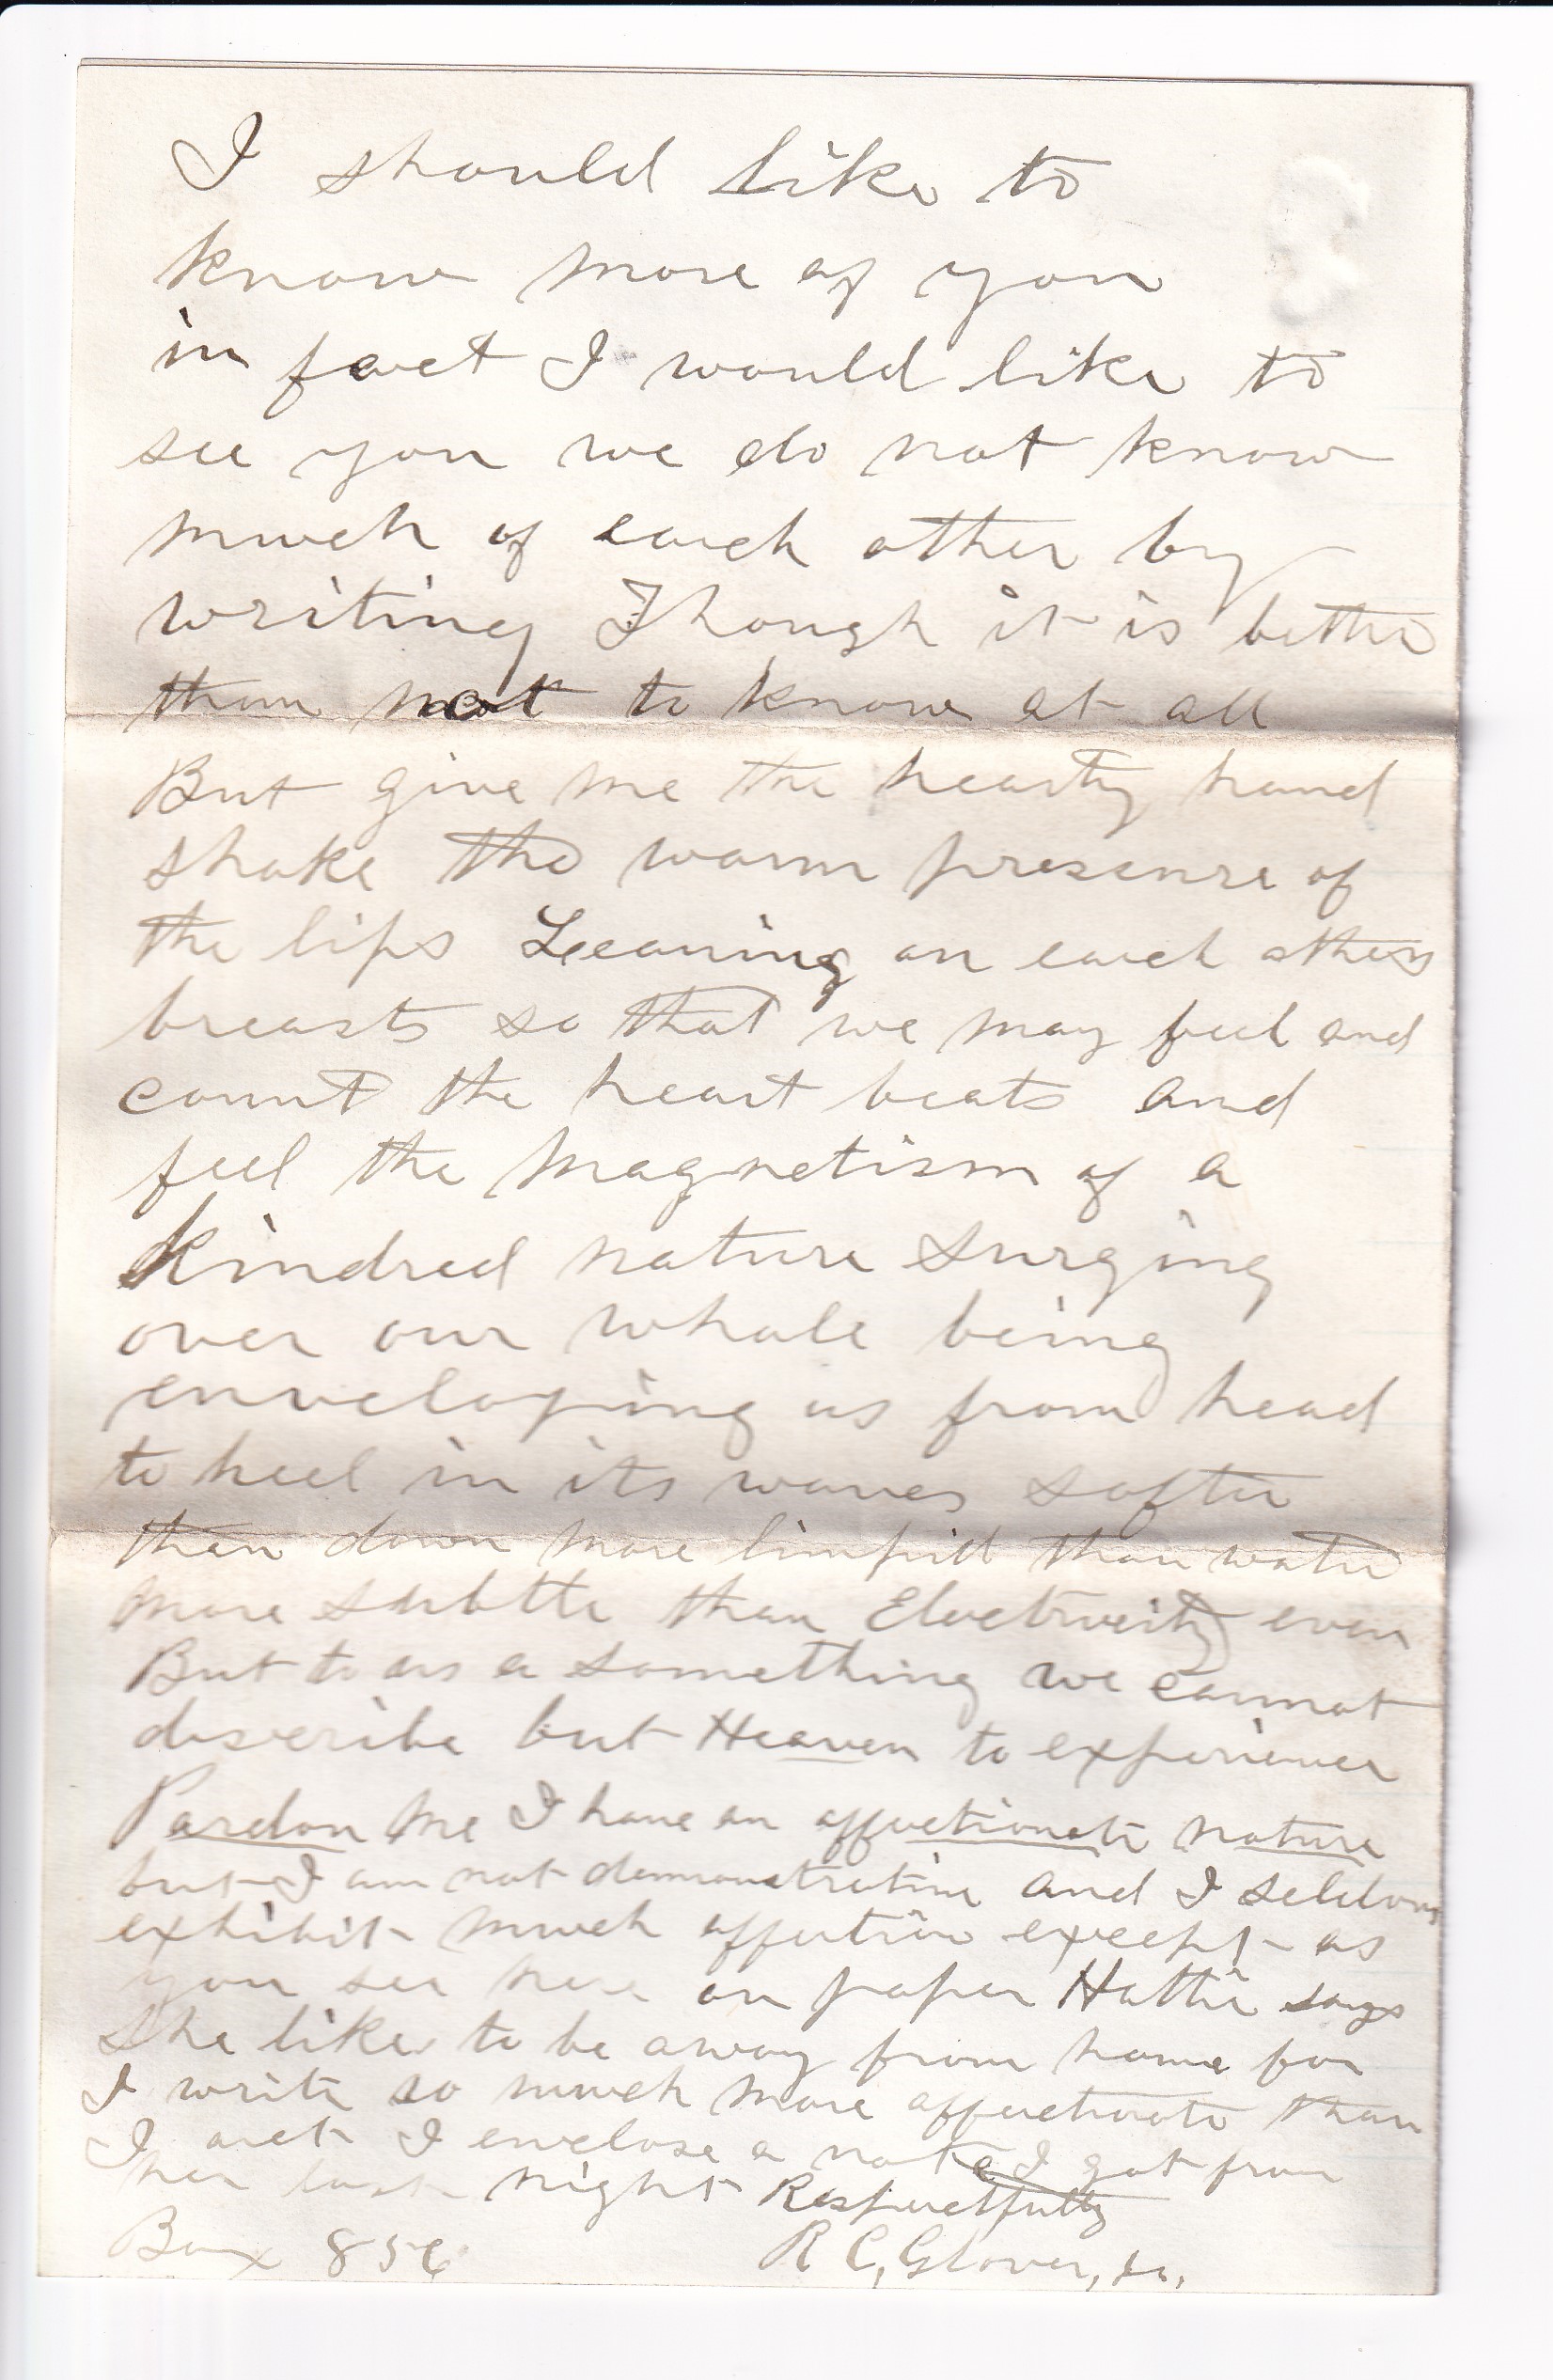 I should like to
know more of you
in fact I would like to
see you we do not know
much of each other by
writing Though it is better
than not to know at all
But give me the hearty hand
shake the warm presence of
the lips Leeaning on each others
breasts so that we may feel and
count the heart beats and
feel the magnetism of a
Kindred nature surging
over our whole being
enveloping us from head
to heel in its waves softer
than down more limpid than water
more subtle than Electricity even
But to us a something we cannot
describe but Heaven to experience
Pardon me I have an affectionate nature
but I am not demonstrative and I seldom
exhibit much affection except as
you see here on paper Hattie says
she likes to be away from home for
I write so much more affectionate than
I act I enclose a note I got from
her last night Respectfully
Box 856 R C, Glover, Sr.